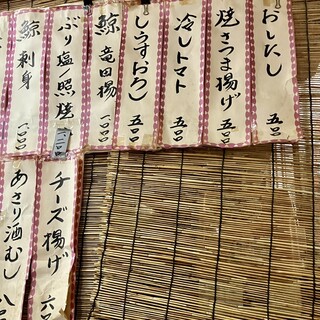 おしんし 五〇〇
焼さつま揚げ 五〇〇
冷しトマト 五〇〇
しらすおろし 五〇〇
鯨竜田揚 一〇〇〇
ぶり塩/照焼
鯨刺身 一〇〇〇
チーズ揚げ 六〇
あさり酒むし 八